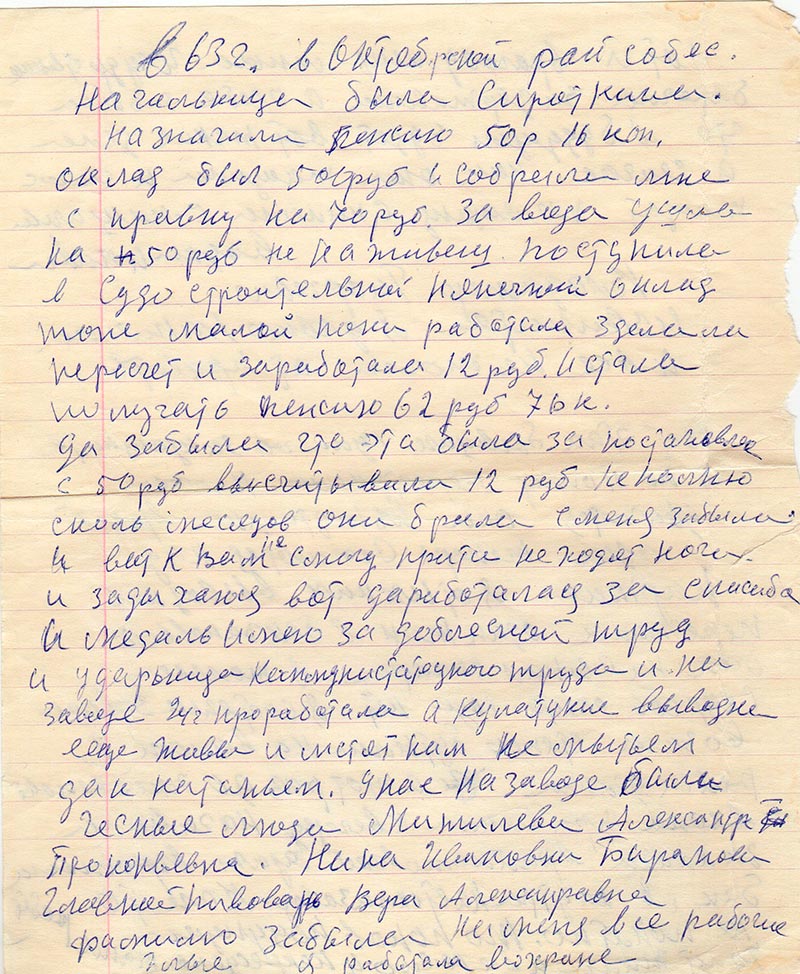 в 63 г. в Октябрской райсобес.
Начальница была Сироткина.
Назначили пенсию 50 р 16 коп.
оклад был 50 руб и собрали мне
справку на 70 руб. завода ушла
на 50 руб не наживеш. поступила
в Судостроительной нянечкой оклад
тоже малой пока работала зделала
пересчет и заработала 12 руб. И стала
получать пенсию 62 руб 76 к.
да забыла что эта была за постановлее
с 50 руб высчитывали 12 руб не помню
сколь месяцов они брали с меня забыла.
И вот к Вам не смогу прити не ходят ноги.
и задыхаюц вот даработалац за спасиба
И медаль имею за доблесной труд
и ударьница
заводе 24 г проработала а
еще живы и мстят нам не мытьем
дак катаньем. У нас на заводе были
чесные люди Александр
Прокопьевна. Нина Ивановна Баранова
Главной пивоварь Вера Александравна
фамилю забыла на меня все рабочие
злые я работала вохране